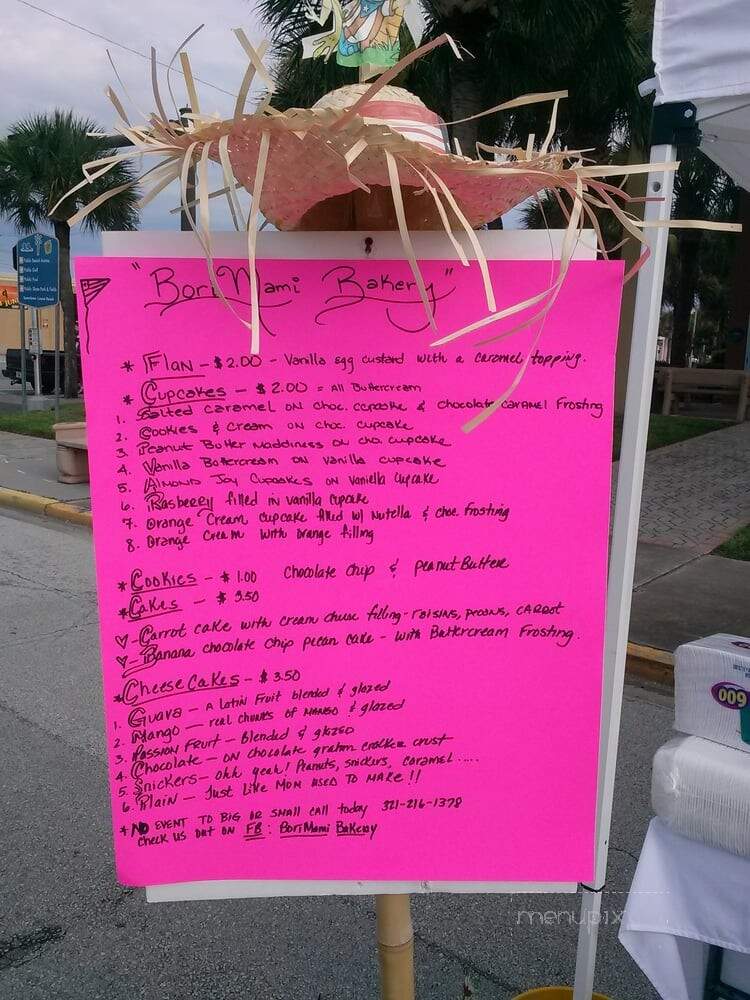 "BoriMami Bakery"
* Flan - $2.00 - Vanilla egg custard with a caramel topping.
* Cupcakes - $2.00 = All Buttercream
1. Salted Caramel on choc. cupcake & chocolate caramel frosting
2. Cookies & Cream on choc. cupcake
3. Peanut Butter Maddiness on cho. cupcake
4. Vanilla Buttercream on Vanilla cupcake
5. Almond Joy Cupcakes on vaniella Cupcake
6. Rasbeery filled in vanilla cupcake
7. Orange Cream cupcake filled w/ Nutella & choc. Frosting
8. Orange Cream with orange filling
* Cookies - $1.00 Chocolate chip & peanut Butter
* Cakes - $3.50
♡ - Carrot cake with cream cheese filling - raisins, pecans, carrot
♡ - Banana chocolate chip pecan cake - with Buttercream Frosting.
* CheeseCakes - $3.50
1. Guava - a latin Fruit blended & glazed
2. Mango - real chunks of mango & glazed
3. Passion Fruit - Blended & glazed
4. Chocolate - on chocolate graham cracker crust
5. Snickers - ohh yeah! Peanuts, snickers, caramel.....
6. Plain - Just like Mom used to make!!
* No event to big or small call today 321-216-1378
Check us out on FB: BoriMami Bakery
009
menupix